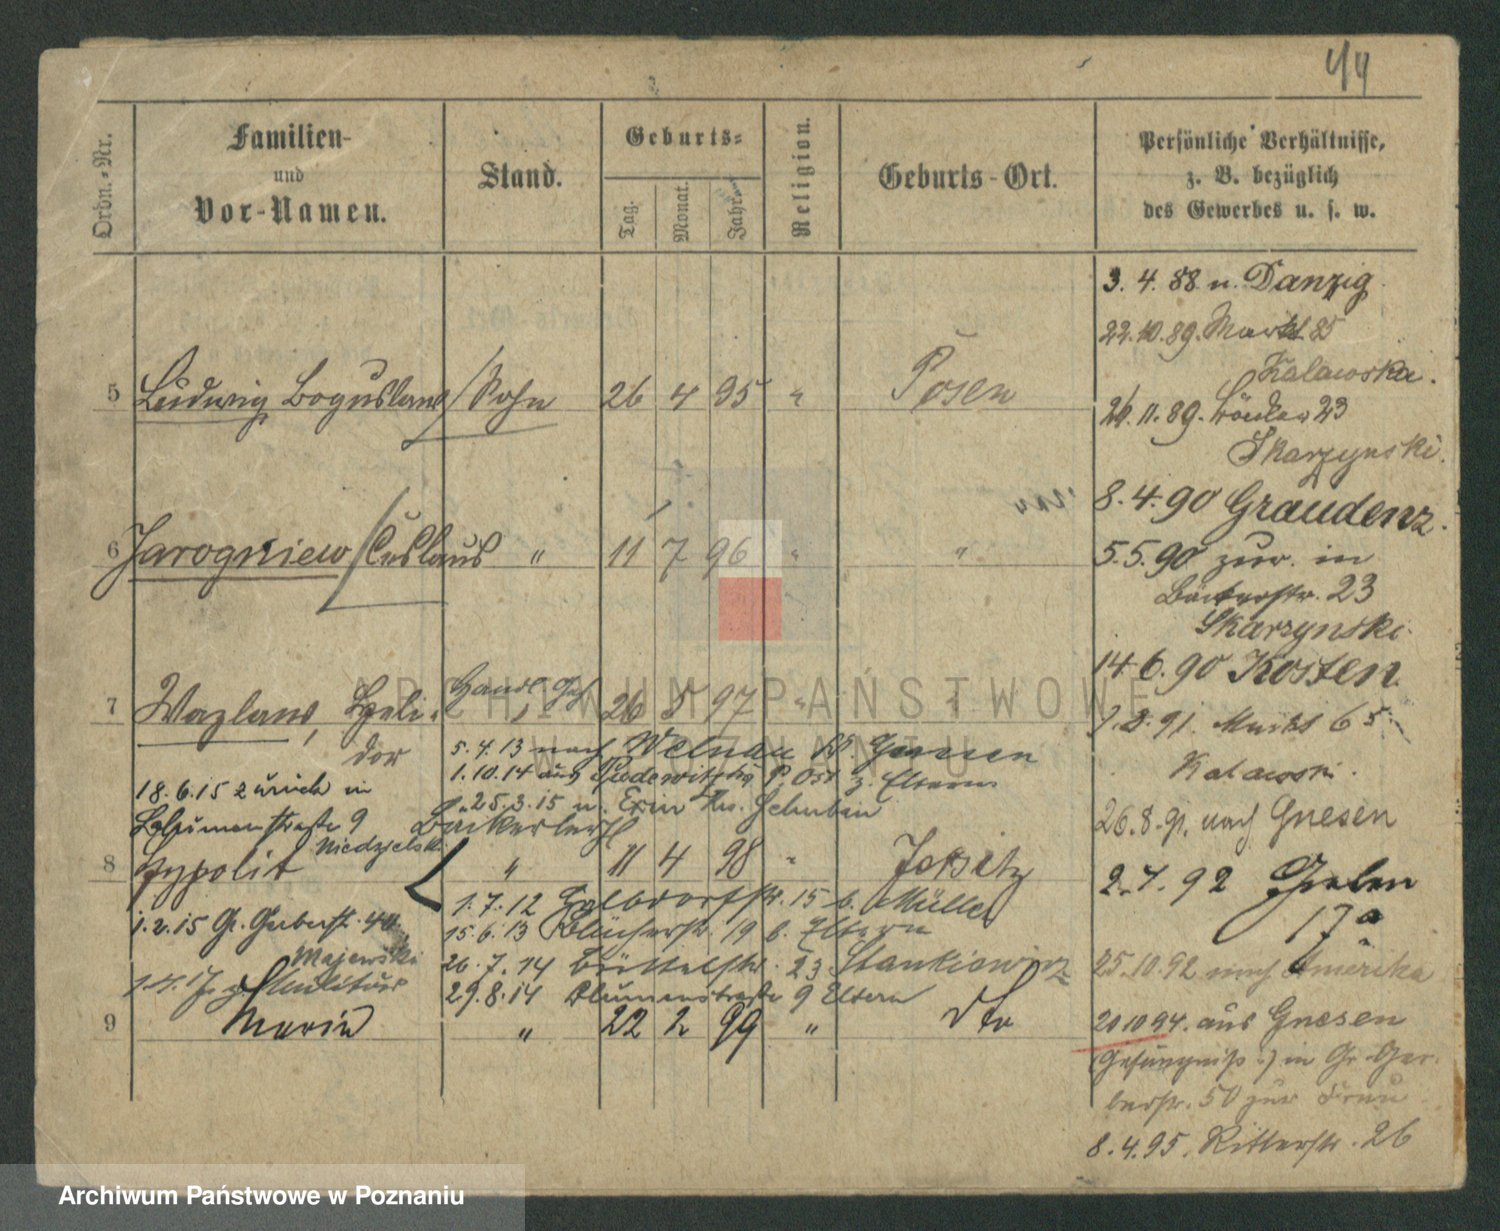 44
Ordn.-Nr.
Familien-
und
Vor-Namen.
Stand.
Geburts-
Tag.
Monat.
Jahr.
Religion.
Geburts-Ort.
Persönliche Verhältnisse,
z. B. bezüglich
des Gewerbes u. s. w.
3. 4. 88 n. Danzig
22.10.89. Markt 85
Kalawska.
5 Ludwig Boguslaw / Sohn 26 4 95 " Posen
26.11.89. 23
Skarzynski.
8.4.90 Graudenz.
6 Jarogniew / Ceslaus " 11 7 96 " "
5.5.90 zur. in
Bäckerstr. 23
Skarzynski.
14.6.90 Kosten
7 Wazlaw, Heli- 26 5 97 "
dor
Markt 65
Kalawski.
5.4.13 nach Welnau
1.10.14 aus Pudewitz z. Eltern
18.6.15 zurück in
25.3.15 n. Exin Kr. Schubin
Blumenstraße 9
Niedzielski
Bäckerlehrl
26.8.91. nach Gnesen
8 Hypolit " 11 4 98 "
2.7.92
17a
1.7.12 15 b. Müller
1.2.15 Gr. Gerberst. 40
Majewski
15.6.13 Blücherstr. 19 b. Eltern
26.7.14 Büttelstr. 23 Stankiewicz
25.10.92 nach Amerika
29.8.14 Blumenstraße 9 Eltern
9 Maria " 22 2 99 " dto
20 10 94. aus Gnesen
(Gefängniß) in Gr. Ger-
berstr. 50 zur Frau
8.4.95. Ritterstr. 26
ARCHIWUM PAŃSTWOWE
W POZNANIU
Archiwum Państwowe w Poznaniu